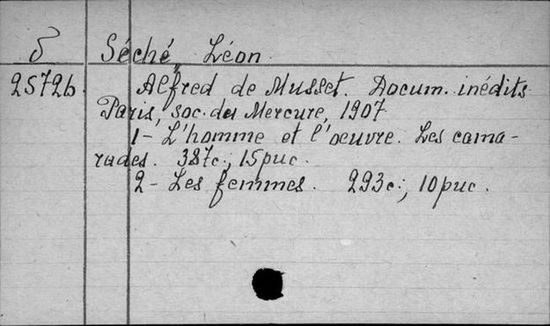 δ Séché, Léon.
25726. Alfred de Musset. Docum. inédits
Paris, soc. du Mercure, 1907
1- L'homme et l'oeuvre. Les cama-
rades. 387с., 15рис.
2- Les femmes. 293с., 10рис.